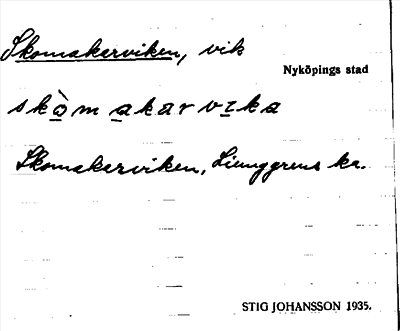 Skomakerviken, vik
Nyköpings stad
skòmakarvika
Skomakerviken, Liunggrens ka.
STIG JOHANSSON 1935.